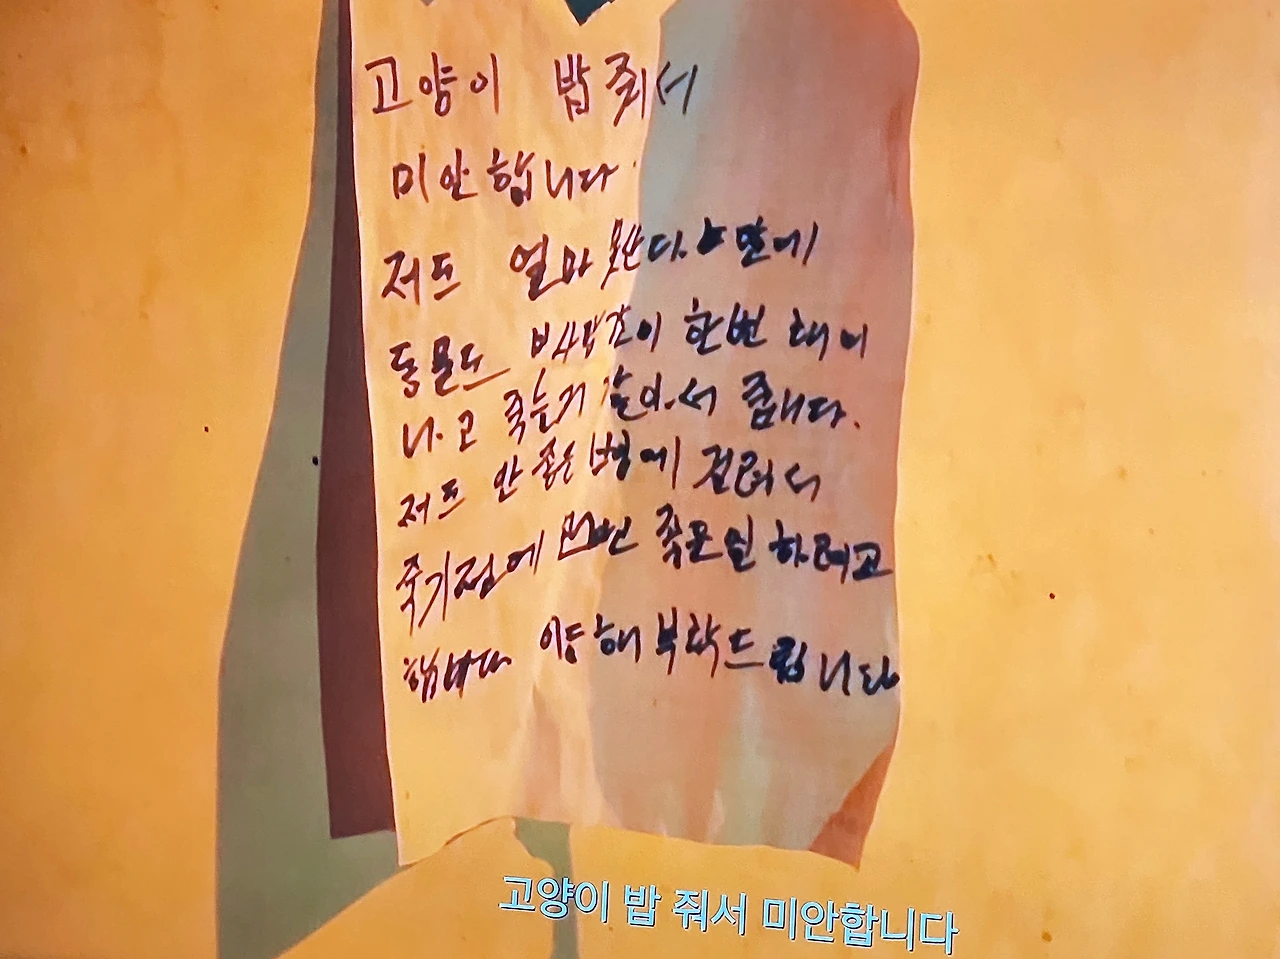 고양이 밥 줘서
미안합니다.
저도 얼마 못산다.는 말에
동물도 같이 한번 태어
나.고 죽는거 같아.서 줍니다.
저도 안 좋은 병에 걸려서
죽기전에 한번 좋은일 하려고
합니다 양해 부탁드립니다
고양이 밥 줘서 미안합니다